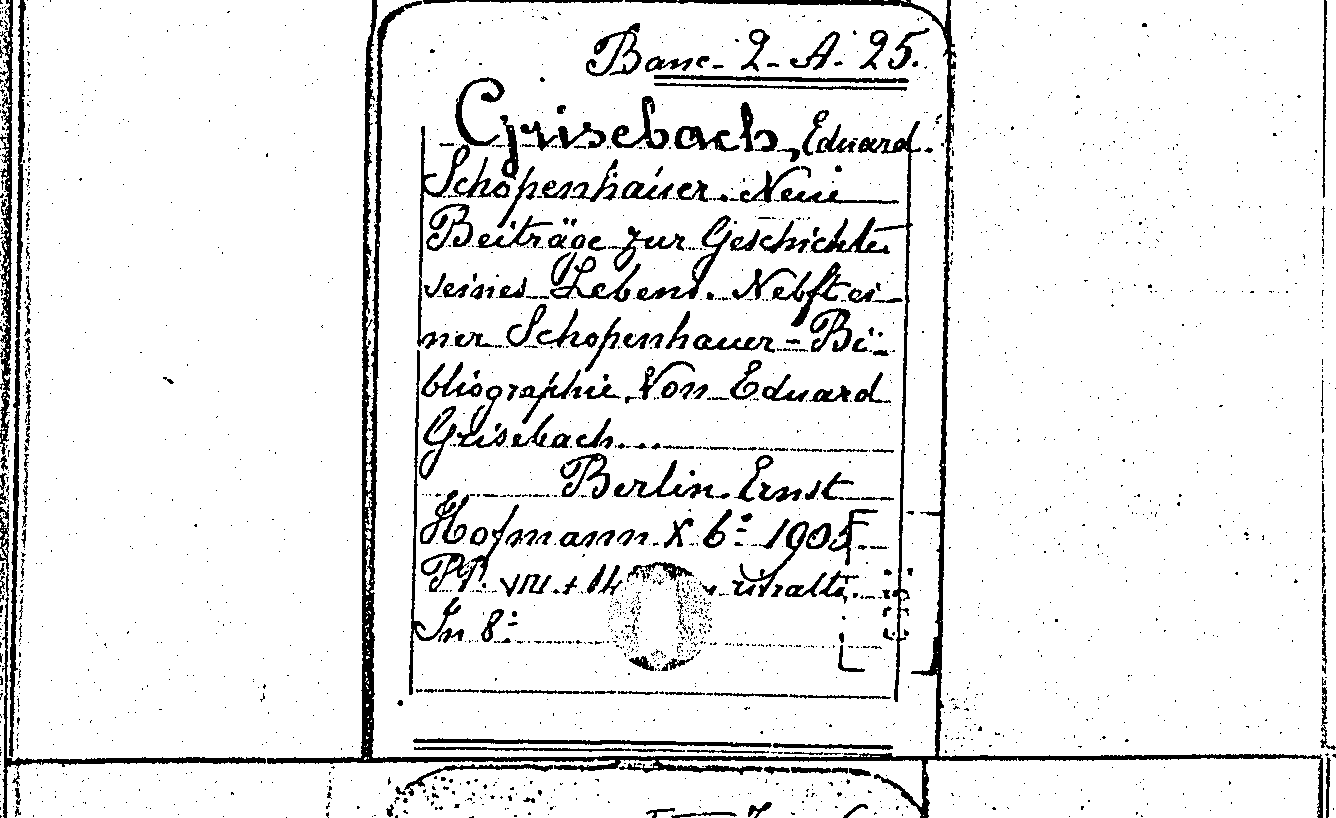 Banc. 2. A. 25.
Grisebach, Eduard.
Schopenhauer. Neue
Beiträge zur Geschichte
seines Lebens. Nebst ei-
ner Schopenhauer-Bi-
bliographie. Von Eduard
Grisebach...
Berlin. Ernst
Hofmann & Cº 1905
PP. VIII +
In 8º